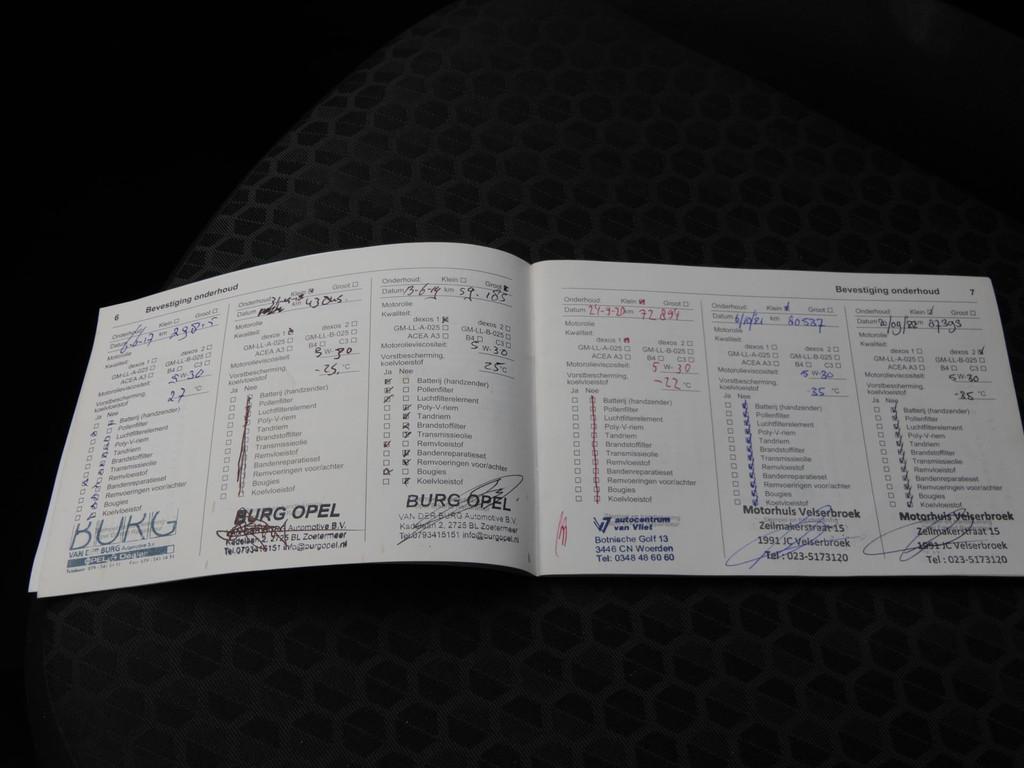 6 Bevestiging onderhoud
Klein Groot
Datum km
Motorolie
Kwaliteit:
dexos 1 dexos 2
GM-LL-A-025 GM-LL-B-025
ACEA A3 B4 C3
Motorolieviscositeit: 5W-30
Vorstbescherming, koelvloeistof 27 °C
Ja Nee
Batterij (handzender)
Pollenfilter
Luchtfilterelement
Poly-V-riem
Tandriem
Brandstoffilter
Transmissieolie
Remvloeistof
Bandenreparatieset
Remvoeringen voor/achter
Bougies
Koelvloeistof
BURG
VAN DER BURG Automotive B.V.
OPEL Dealer
Onderhoud: Klein Groot
Datum km
Motorolie
Kwaliteit:
dexos 1 dexos 2
GM-LL-A-025 GM-LL-B-025
ACEA A3 B4 C3
Motorolieviscositeit: 5 W-30
Vorstbescherming, koelvloeistof -25 °C
Ja Nee
Batterij (handzender)
Pollenfilter
Luchtfilterelement
Poly-V-riem
Tandriem
Brandstoffilter
Transmissieolie
Remvloeistof
Bandenreparatieset
Remvoeringen voor/achter
Bougies
Koelvloeistof
BURG OPEL
Automotive B.V.
2, 2725 BL Zoetermeer
Tel.0793415151 info@burgopel.nl
Onderhoud: Klein Groot
Datum 13-6-19 km 59.185
Motorolie
Kwaliteit:
dexos 1 dexos 2
GM-LL-A-025 GM-LL-B-025
ACEA A3 B4 C3
Motorolieviscositeit: 5 W-30
Vorstbescherming, koelvloeistof 25 °C
Ja Nee
Batterij (handzender)
Pollenfilter
Luchtfilterelement
Poly-V-riem
Tandriem
Brandstoffilter
Transmissieolie
Remvloeistof
Bandenreparatieset
Remvoeringen voor/achter
Bougies
Koelvloeistof
BURG OPEL
VAN DER BURG Automotive B.V.
2, 2725 BL Zoetermeer
Tel.0793415151 info@burgopel.nl
Bevestiging onderhoud 7
Onderhoud: Klein Groot
Datum 24-9-20 km 72.894
Motorolie
Kwaliteit:
dexos 1 dexos 2
GM-LL-A-025 GM-LL-B-025
ACEA A3 B4 C3
Motorolieviscositeit: 5 W-30
Vorstbescherming, koelvloeistof -22 °C
Ja Nee
Batterij (handzender)
Pollenfilter
Luchtfilterelement
Poly-V-riem
Tandriem
Brandstoffilter
Transmissieolie
Remvloeistof
Bandenreparatieset
Remvoeringen voor/achter
Bougies
Koelvloeistof
autocentrum
van Vliet
Botnische Golf 13
3446 CN Woerden
Tel: 0348 48 60 60
Onderhoud: Klein Groot
Datum 6/10/21 km 80537
Motorolie
Kwaliteit:
dexos 1 dexos 2
GM-LL-A-025 GM-LL-B-025
ACEA A3 B4 C3
Motorolieviscositeit: 5 W-30
Vorstbescherming, koelvloeistof 35 °C
Ja Nee
Batterij (handzender)
Pollenfilter
Luchtfilterelement
Poly-V-riem
Tandriem
Brandstoffilter
Transmissieolie
Remvloeistof
Bandenreparatieset
Remvoeringen voor/achter
Bougies
Koelvloeistof
Motorhuis Velserbroek
Zeilmakerstraat 15
1991 JC Velserbroek
Tel: 023-5173120
Onderhoud: Klein Groot
Datum km 87393
Motorolie
Kwaliteit:
dexos 1 dexos 2
GM-LL-A-025 GM-LL-B-025
ACEA A3 B4 C3
Motorolieviscositeit: 5W-30
Vorstbescherming, koelvloeistof -35 °C
Ja Nee
Batterij (handzender)
Pollenfilter
Luchtfilterelement
Poly-V-riem
Tandriem
Brandstoffilter
Transmissieolie
Remvloeistof
Bandenreparatieset
Remvoeringen voor/achter
Bougies
Koelvloeistof
Motorhuis Velserbroek
Zeilmakerstraat 15
1991 JC Velserbroek
Tel: 023-5173120